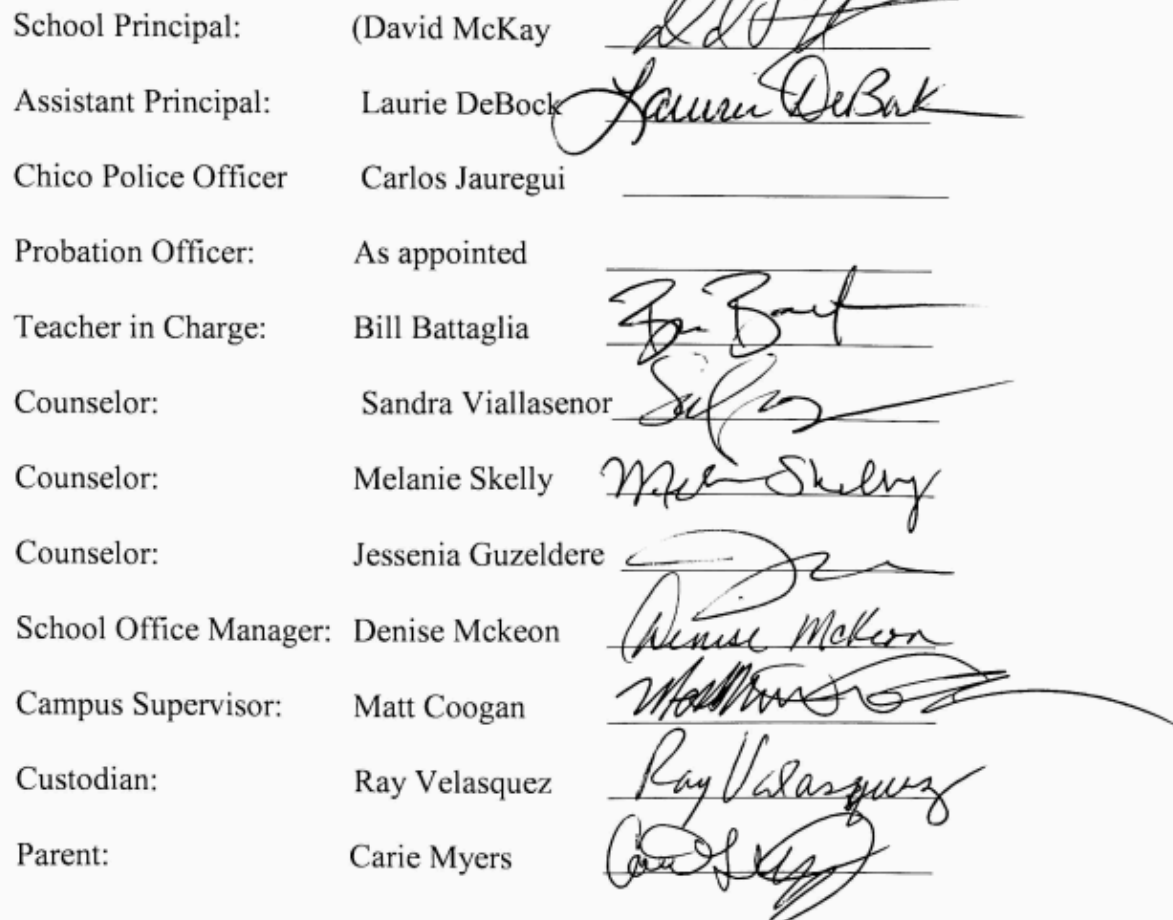 School Principal: (David McKay
Assistant Principal: Laurie DeBock Laurie DeBock
Chico Police Officer Carlos Jauregui
Probation Officer: As appointed
Teacher in Charge: Bill Battaglia
Counselor: Sandra Viallasenor
Counselor: Melanie Skelly Skelly
Counselor: Jessenia Guzeldere
School Office Manager: Denise Mckeon Denise McKeon
Campus Supervisor: Matt Coogan
Custodian: Ray Velasquez Ray Valasquez
Parent: Carie Myers